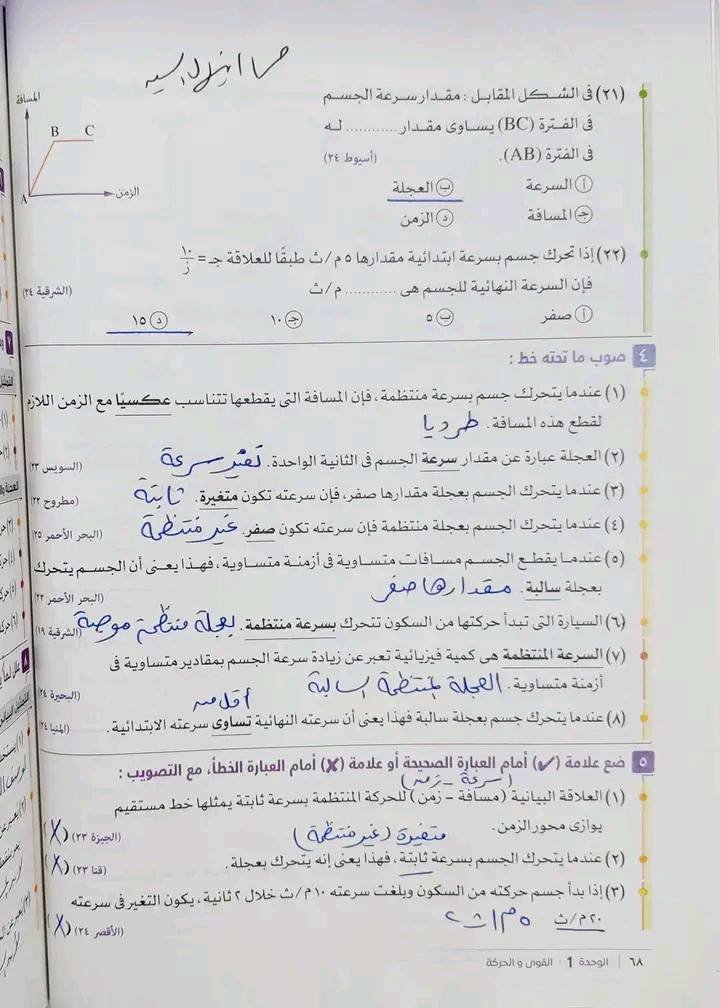 (٢١) فى الشكل المقابل : مقدار سرعة الجسم
فى الفترة (BC) يساوى مقدار ............ لـه
فى الفترة (AB). (أسيوط ٢٤)
أ السرعة ب العجلة
ج المسافة د الزمن
المسافة
B C
A الزمن
(٢٢) إذا تحرك جسم بسرعة ابتدائية مقدارها ٥ م/ث طبقًا للعلاقة جـ = ١٠/ز
فإن السرعة النهائية للجسم هى ............ م/ث (الشرقية ٢٤)
أ صفر ب ٥ ج ١٠ د ١٥
٤ صوب ما تحته خط :
(١) عندما يتحرك جسم بسرعة منتظمة، فإن المسافة التى يقطعها تتناسب عكسيًا مع الزمن اللازم
لقطع هذه المسافة. طرديا
(٢) العجلة عبارة عن مقدار سرعة الجسم فى الثانية الواحدة. تغير سرعة (السويس ٢٣)
(٣) عندما يتحرك الجسم بعجلة مقدارها صفر، فإن سرعته تكون متغيرة. ثابتة (مطروح ٢٢)
(٤) عندما يتحرك الجسم بعجلة منتظمة فإن سرعته تكون صفر. غير منتظمة (البحر الأحمر ٢٥)
(٥) عندما يقطع الجسم مسافات متساوية فى أزمنة متساوية، فهذا يعنى أن الجسم يتحرك
بعجلة سالبة. مقدارها صفر (البحر الأحمر ٢٢)
(٦) السيارة التى تبدأ حركتها من السكون تتحرك بسرعة منتظمة. بعجلة منتظمة موجبة (الشرقية ١٩)
(٧) السرعة المنتظمة هى كمية فيزيائية تعبر عن زيادة سرعة الجسم بمقادير متساوية فى
أزمنة متساوية. العجلة المنتظمة السالبة (البحيرة ٢٤)
أقل من
(٨) عندما يتحرك جسم بعجلة سالبة فهذا يعنى أن سرعته النهائية تساوى سرعته الابتدائية. (المنيا ٢٤)
٥ ضع علامة (✓) أمام العبارة الصحيحة أو علامة (✗) أمام العبارة الخطأ، مع التصويب :
(سرعة - زمن)
(١) العلاقة البيانية (مسافة – زمن) للحركة المنتظمة بسرعة ثابتة يمثلها خط مستقيم
يوازى محور الزمن. (الجيزة ٢٣) (X)
متغيرة (غير منتظمة)
(٢) عندما يتحرك الجسم بسرعة ثابتة، فهذا يعنى إنه يتحرك بعجلة. (قنا ٢٣) (X)
(٣) إذا بدأ جسم حركته من السكون وبلغت سرعته ١٠ م/ث خلال ٢ ثانية، يكون التغير فى سرعته
٢٠ م/ث ٥ م/ث٢ (الأقصر ٢٤) (X)
٦٨ الوحدة 1 : القوى و الحركة